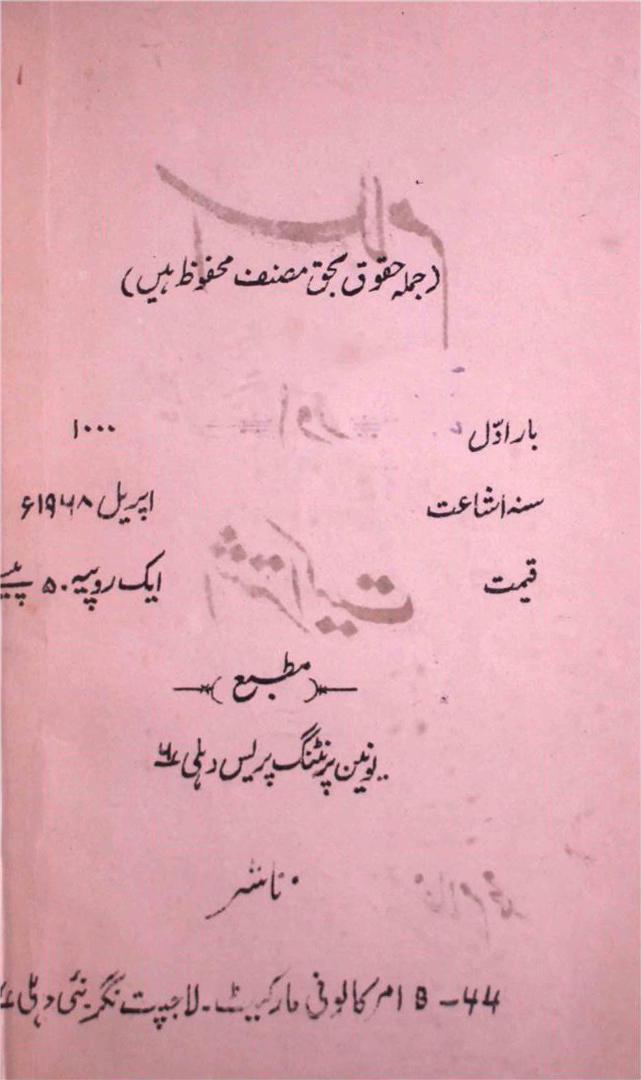 (جملہ حقوق بحق مصنف محفوظ ہیں)
بار ادّل ۱۰۰۰
سنہ اشاعت اپریل ۱۹۶۸ء
قیمت ایک روپیہ ۵۰ پیسے
مطبع
یونین پرنٹنگ پریس دہلی
ناشر
۴۴ - B امر کالونی مارکیٹ۔ لاجپت نگر۔ نئی دہلی
اسلام
اور
اشتراکیت